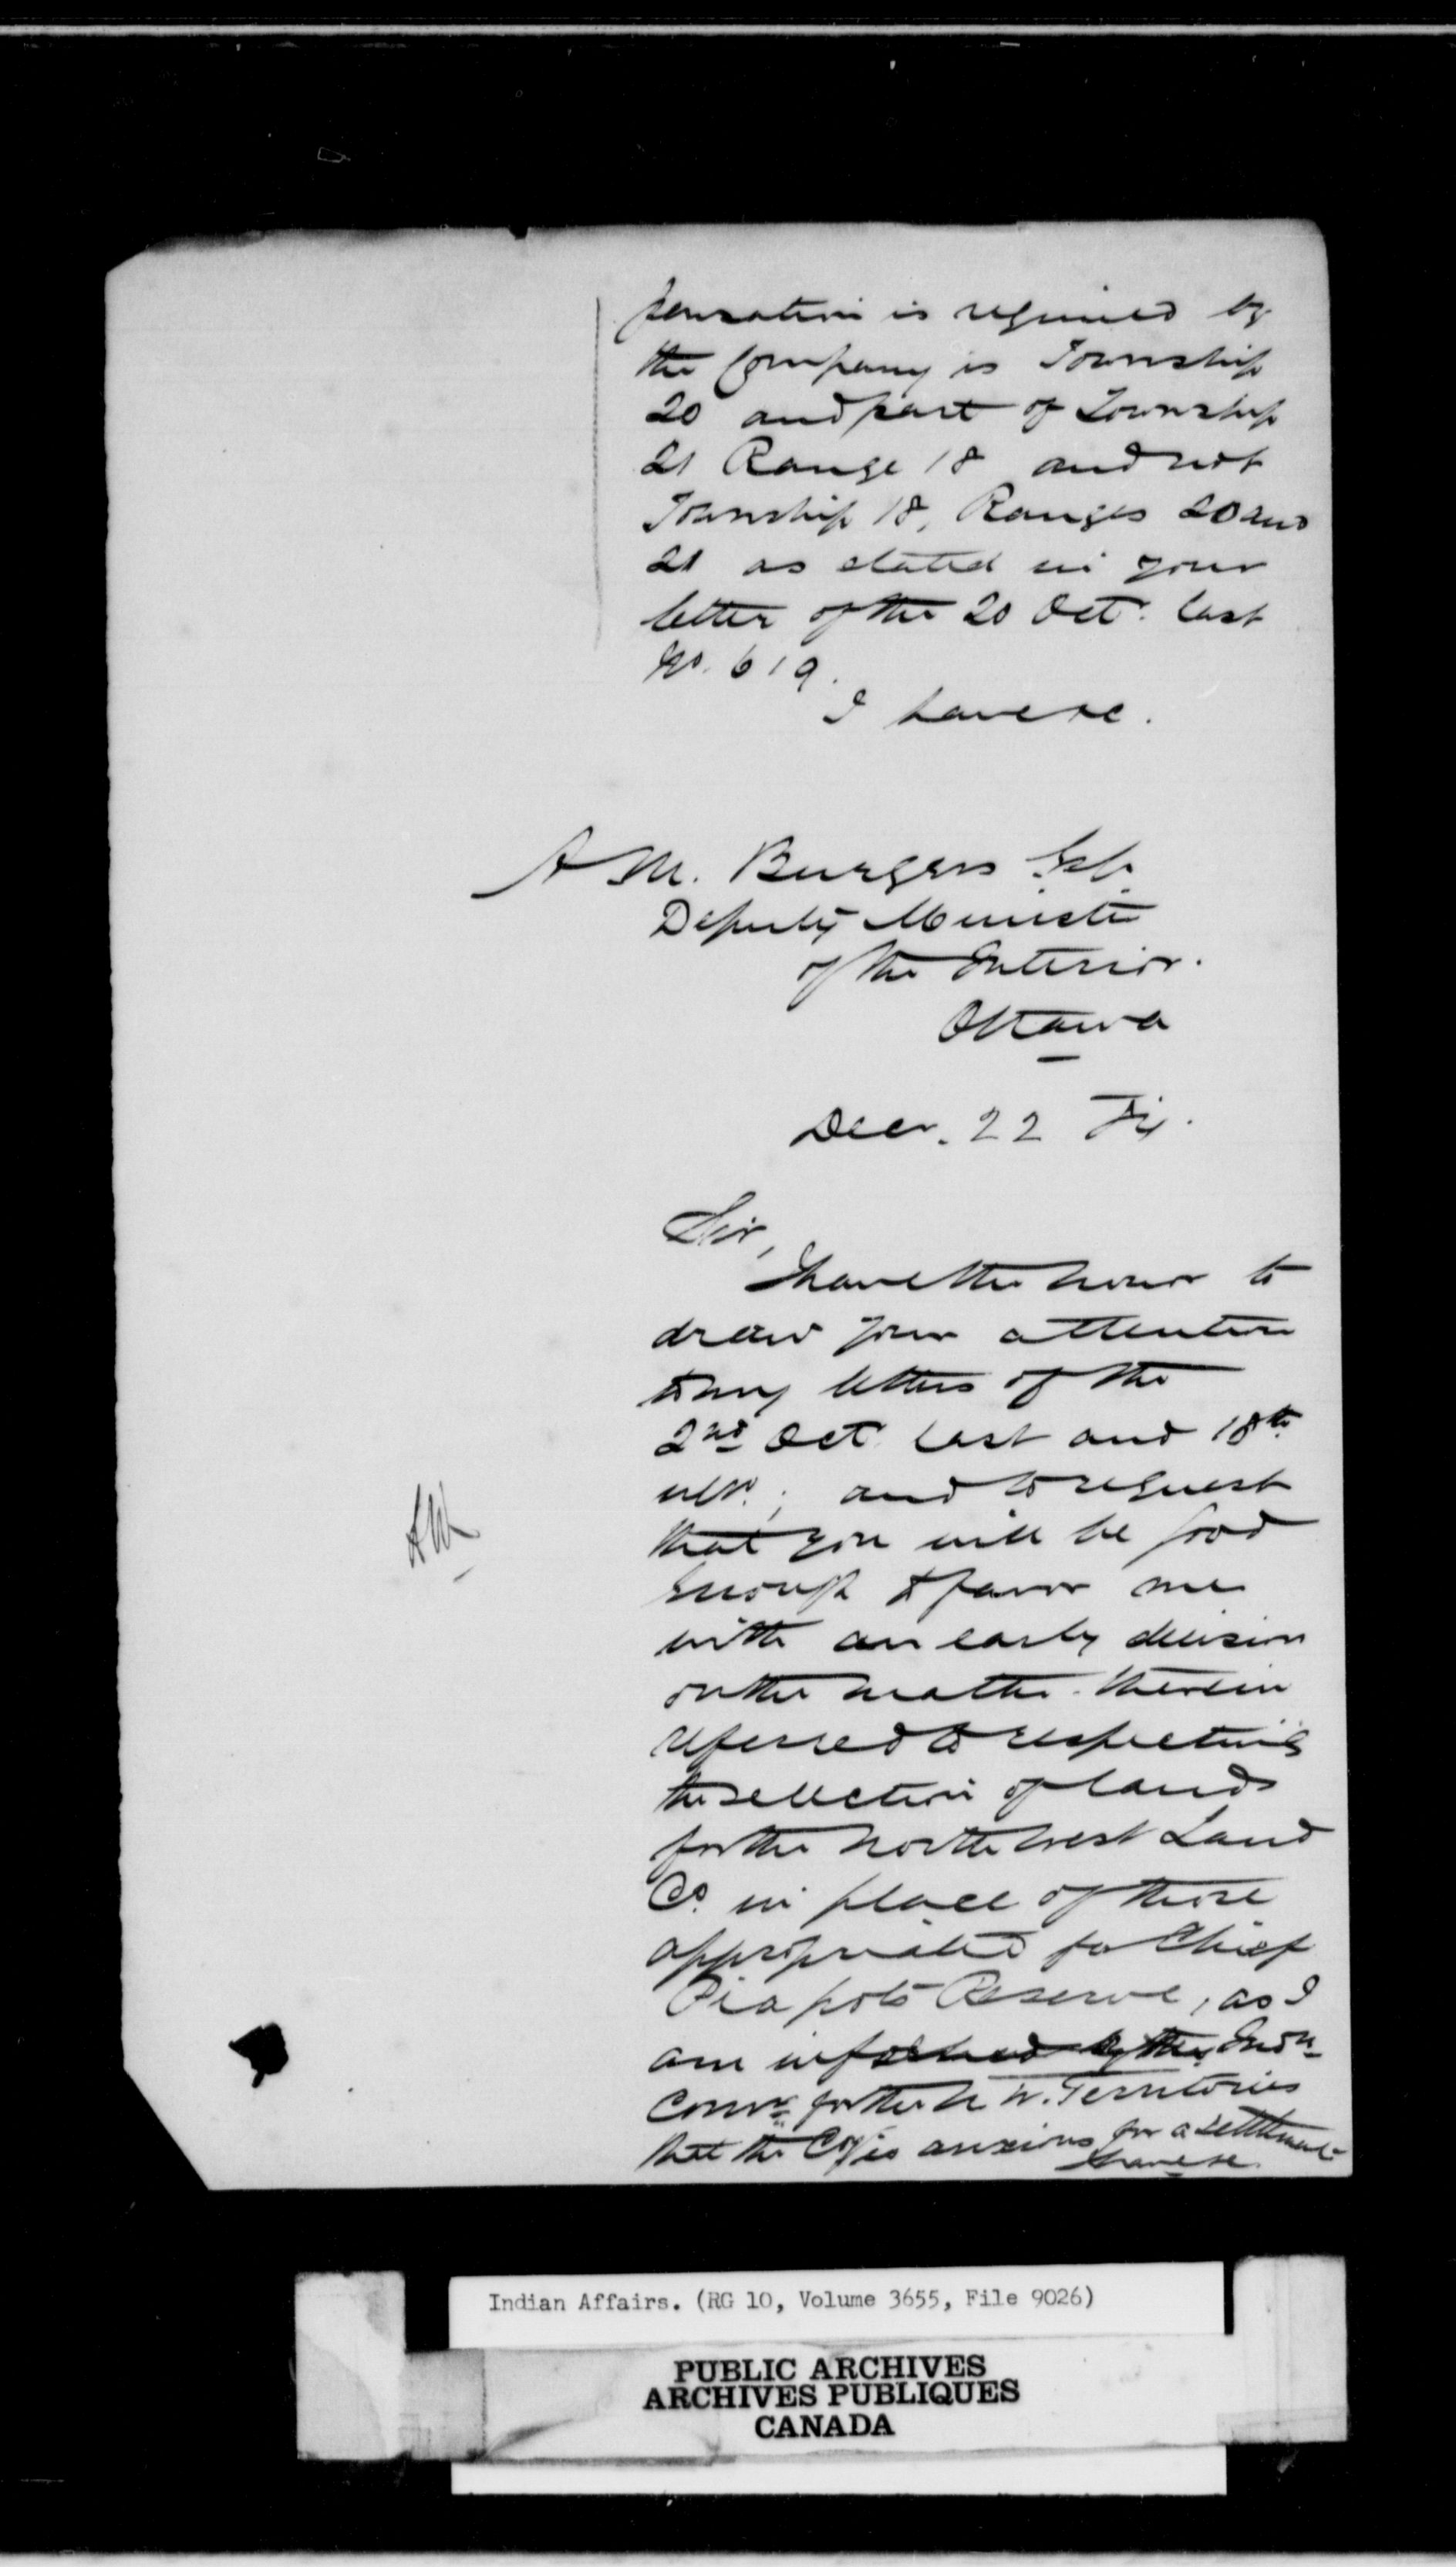 pensation is required by
the Company is Township
20 and part of Township
21 Range 18 and not
Township 18, Ranges 20 and
21 as stated in your
letter of the 20 Oct. last
No. 619.
I have &c.
A M. Burgess Esq.
Deputy Minister
of the Interior.
Ottawa
Decr. 22
Sir,
I have the honor to
draw your attention
to my letters of the
2nd Oct. last and 18th
ulto.; and to request
that you will be good
enough to favor me
with an early decision
on the matter therein
referred to respecting
the selection of lands
for the North West Land
Co. in place of those
appropriated for Chief
Piapots Reserve, as I
am informed by the Indn
Commr for the N W. Territories
that the Coy is anxious for a settlement
I have &c.
Indian Affairs. (RG 10, Volume 3655, File 9026)
PUBLIC ARCHIVES
ARCHIVES PUBLIQUES
CANADA